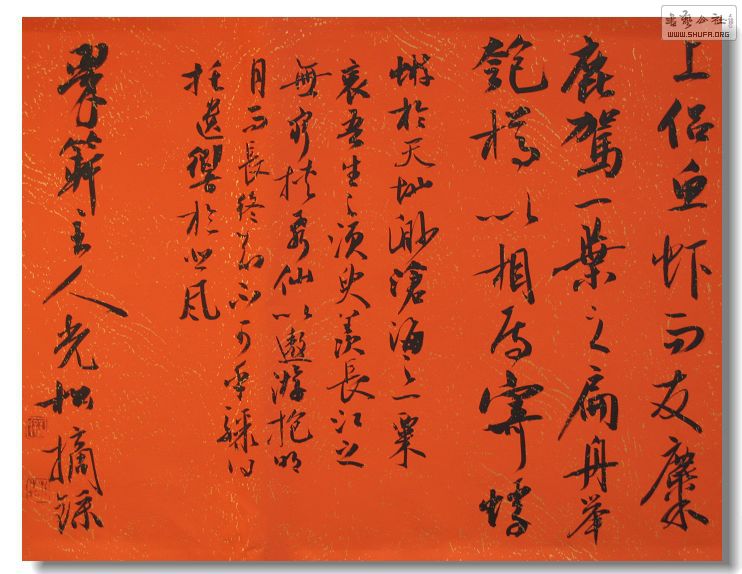 上侣魚虾而友麋
鹿駕一葉之扁舟举
匏樽以相属寄蜉
蝣於天地渺滄海之一粟
哀吾生之須臾羨長江之
無窮挟飛仙以遨游抱明
月而長終知不可乎驟得
托遺響於悲風
主人光松摘錄
書藝公社
WWW.SHUFA.ORG